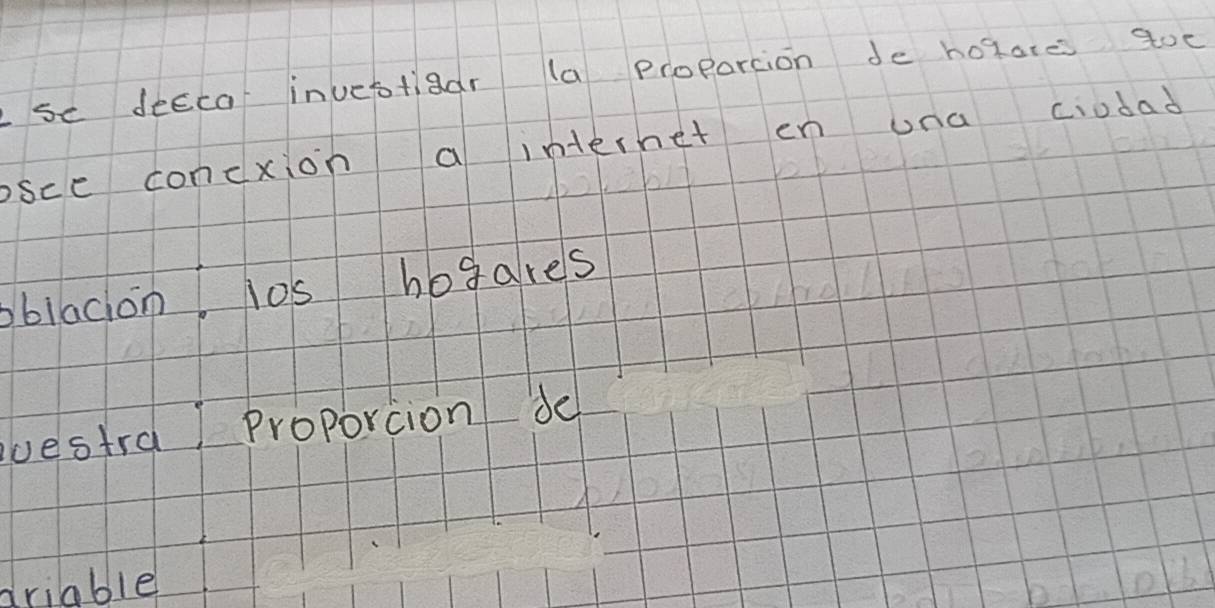 se desea investigar la proporción de hogares que
osee conexión a internet en una ciudad
oblación: los hogares
uestra: Proporcion de
ariable